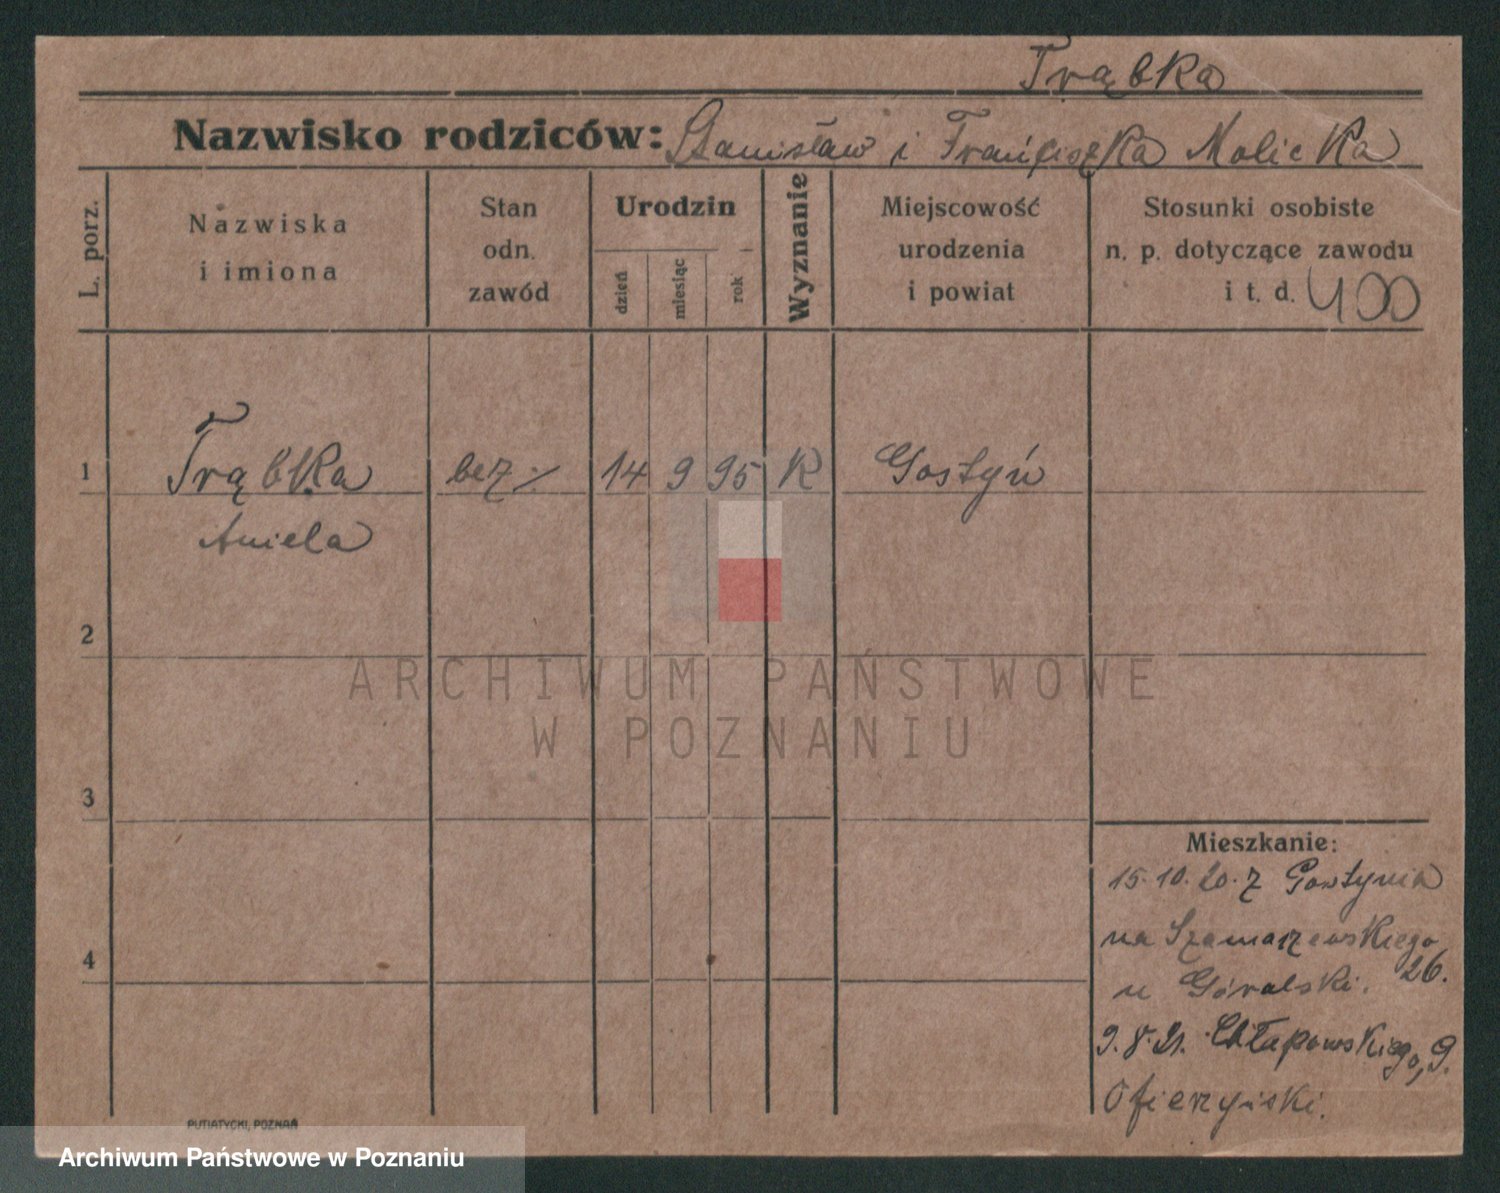 Trąbka
Nazwisko rodziców: Stanisław i Franciszka Molicka
L. porz.
Nazwiska
i imiona
Stan
odn.
zawód
Urodzin
dzień
miesiąc
rok
Wyznanie
Miejscowość
urodzenia
i powiat
Stosunki osobiste
n. p. dotyczące zawodu
i t. d. 400
1 Trąbka bez 14 9 95 K Gostyń
Aniela
2
ARCHIWUM PAŃSTWOWE
W POZNANIU
3
Mieszkanie:
15.10.20. z Gostynia
na Szamarzewskiego
26.
4
u Góralski.
9.8.21. Chłapowskiego, 9.
Ofierzyński.
PUTIATYCKI, POZNAŃ
Archiwum Państwowe w Poznaniu